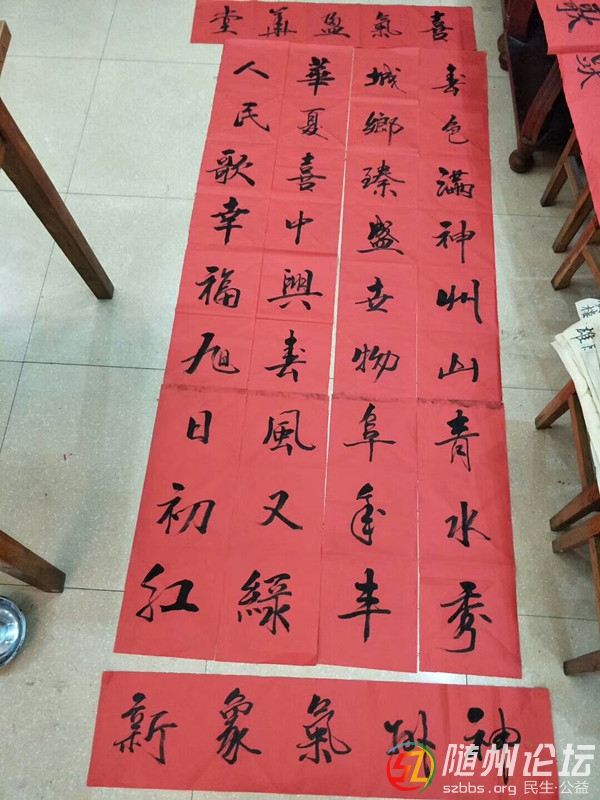 喜氣盈華堂
春色滿神州山青水秀
城鄉臻盛世物阜年丰
華夏喜中興春風又綠
人民歌幸福旭日初红
神州氣象新
歌
雄
随州论坛
szbbs.org 民生·公益